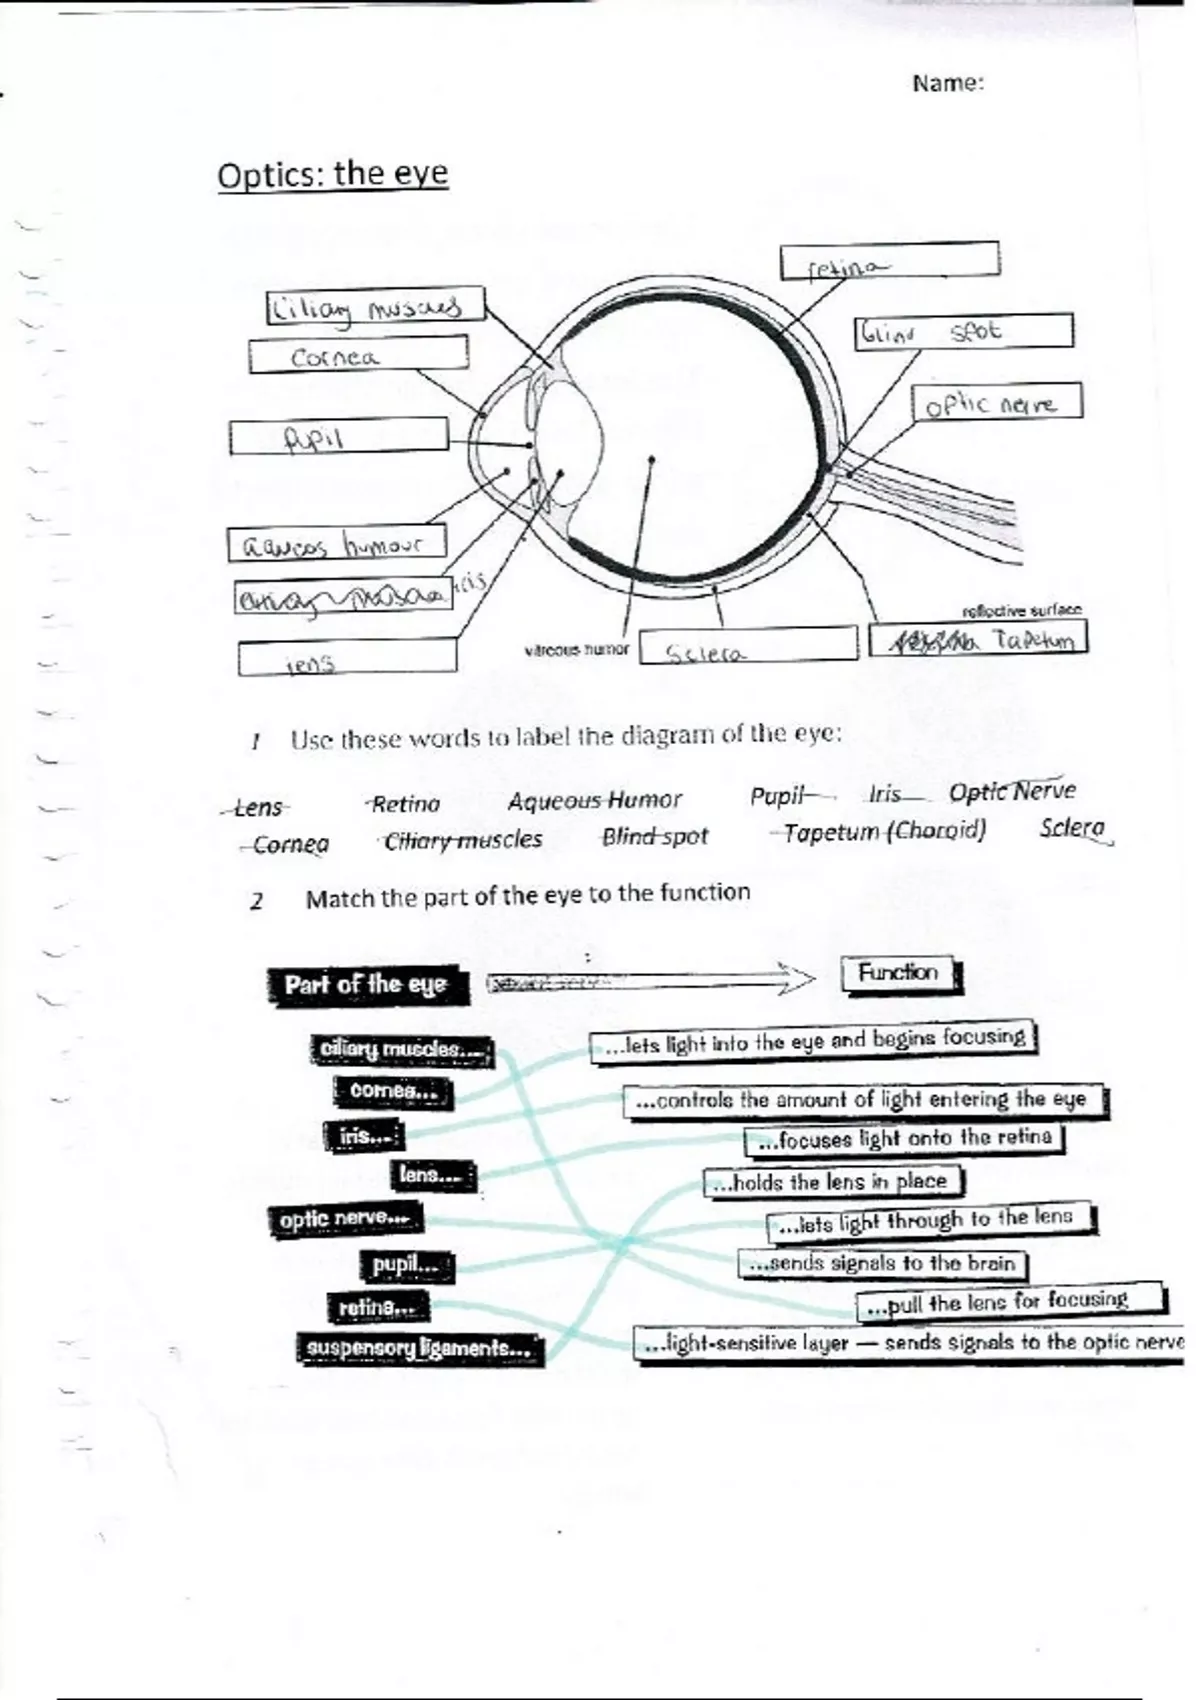 Name:
Optics: the eye
retina
Ciliary muscles
Blind spot
Cornea
optic nerve
Pupil
aqueos humour
iris
reflective surface
lens
vitreous humor
Sclera
Tapetum
1 Use these words to label the diagram of the eye:
Lens Retina Aqueous Humor Pupil Iris Optic Nerve
Cornea Ciliary muscles Blind spot Tapetum (Choroid) Sclera
2 Match the part of the eye to the function
Part of the eye Function
ciliary muscles... ...lets light into the eye and begins focusing
cornea... ...controls the amount of light entering the eye
iris... ...focuses light onto the retina
lens... ...holds the lens in place
optic nerve... ...lets light through to the lens
pupil... ...sends signals to the brain
retina... ...pull the lens for focusing
suspensory ligaments... ...light-sensitive layer — sends signals to the optic nerve